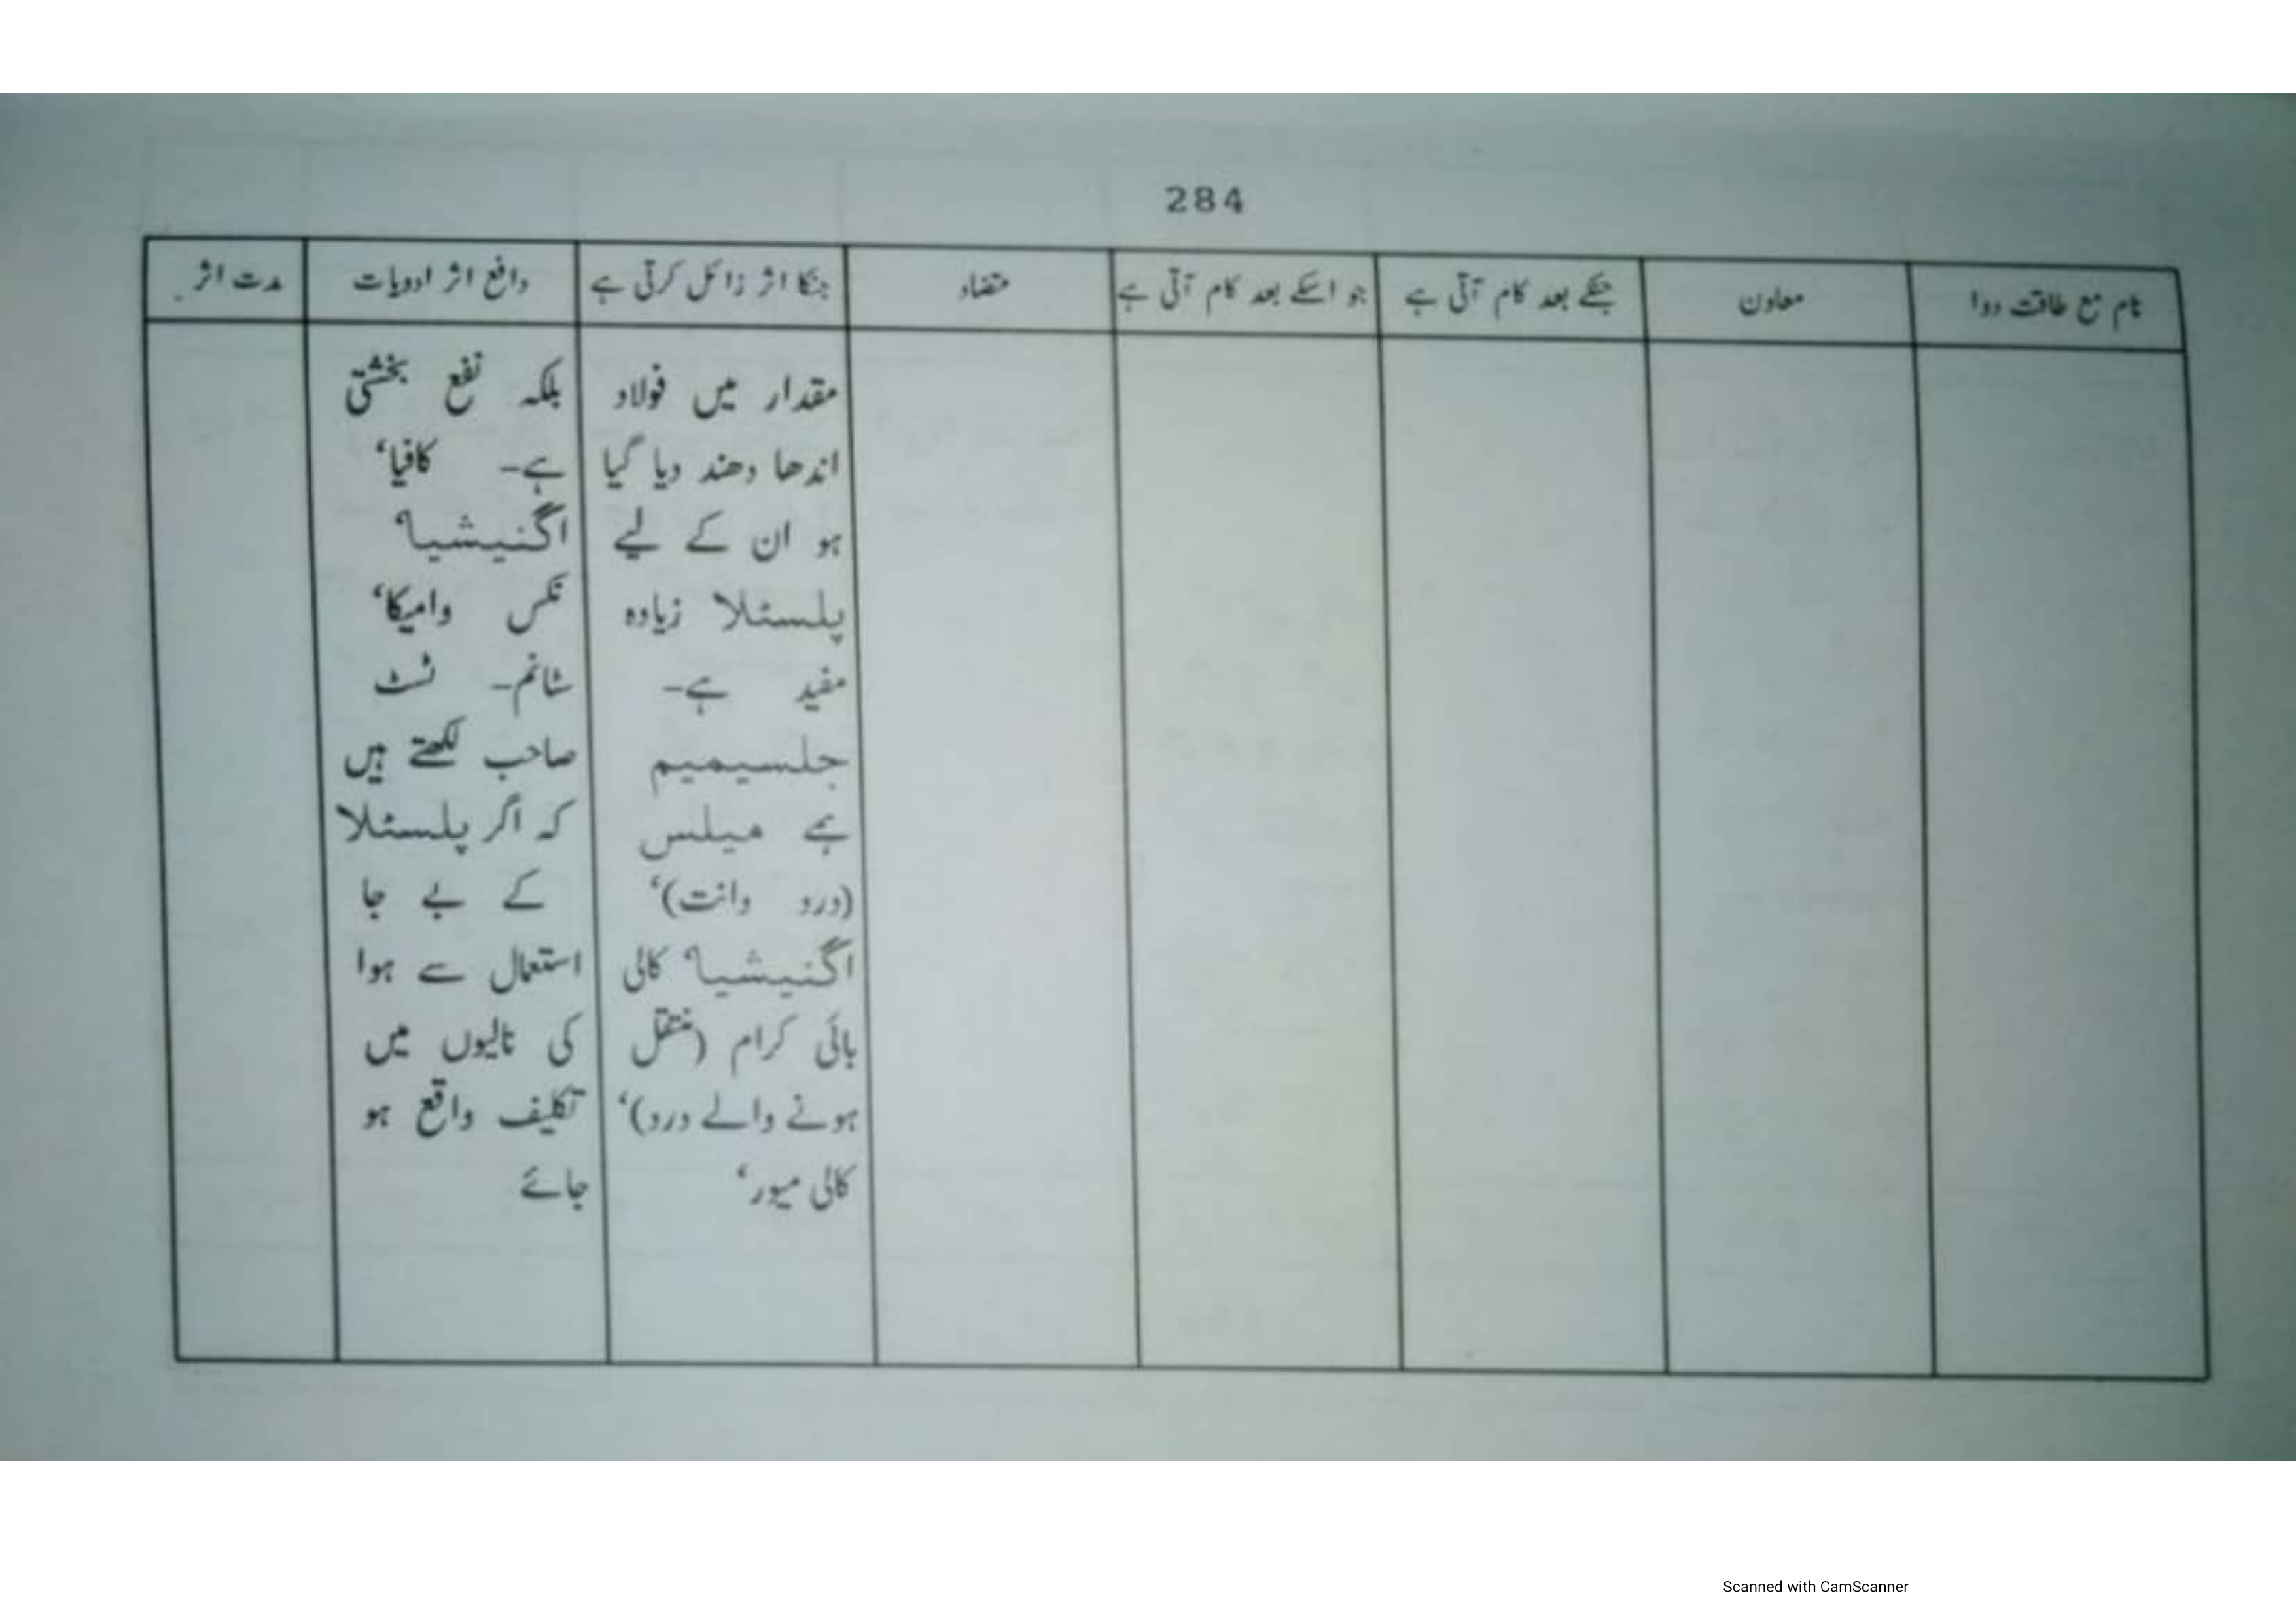 284
نام مع طاقت دوا
معاون
جسکے بعد کام آتی ہے
جو اسکے بعد کام آتی ہے
متضاد
جنکا اثر زائل کرتی ہے
دافع اثر ادویات
مدت اثر
مقدار میں فولاد
اندھا دھند دیا گیا
ہو ان کے لیے
پلسٹلا زیادہ
مفید ہے۔
جلسیمیم
ہے میلس
(درد دانت)‘
اگنیشیا‘ کالی
بائی کرام (منتقل
ہونے والے درد)‘
کالی میور‘
بلکہ نفع بخشتی
ہے۔ کافیا‘
اگنیشیا‘
نکس وامیکا‘
شانم۔ ٹسٹ
صاحب لکھتے ہیں
کہ اگر پلسٹلا
کے بے جا
استعمال سے ہوا
کی نالیوں میں
تکلیف واقع ہو
جائے
Scanned with CamScanner